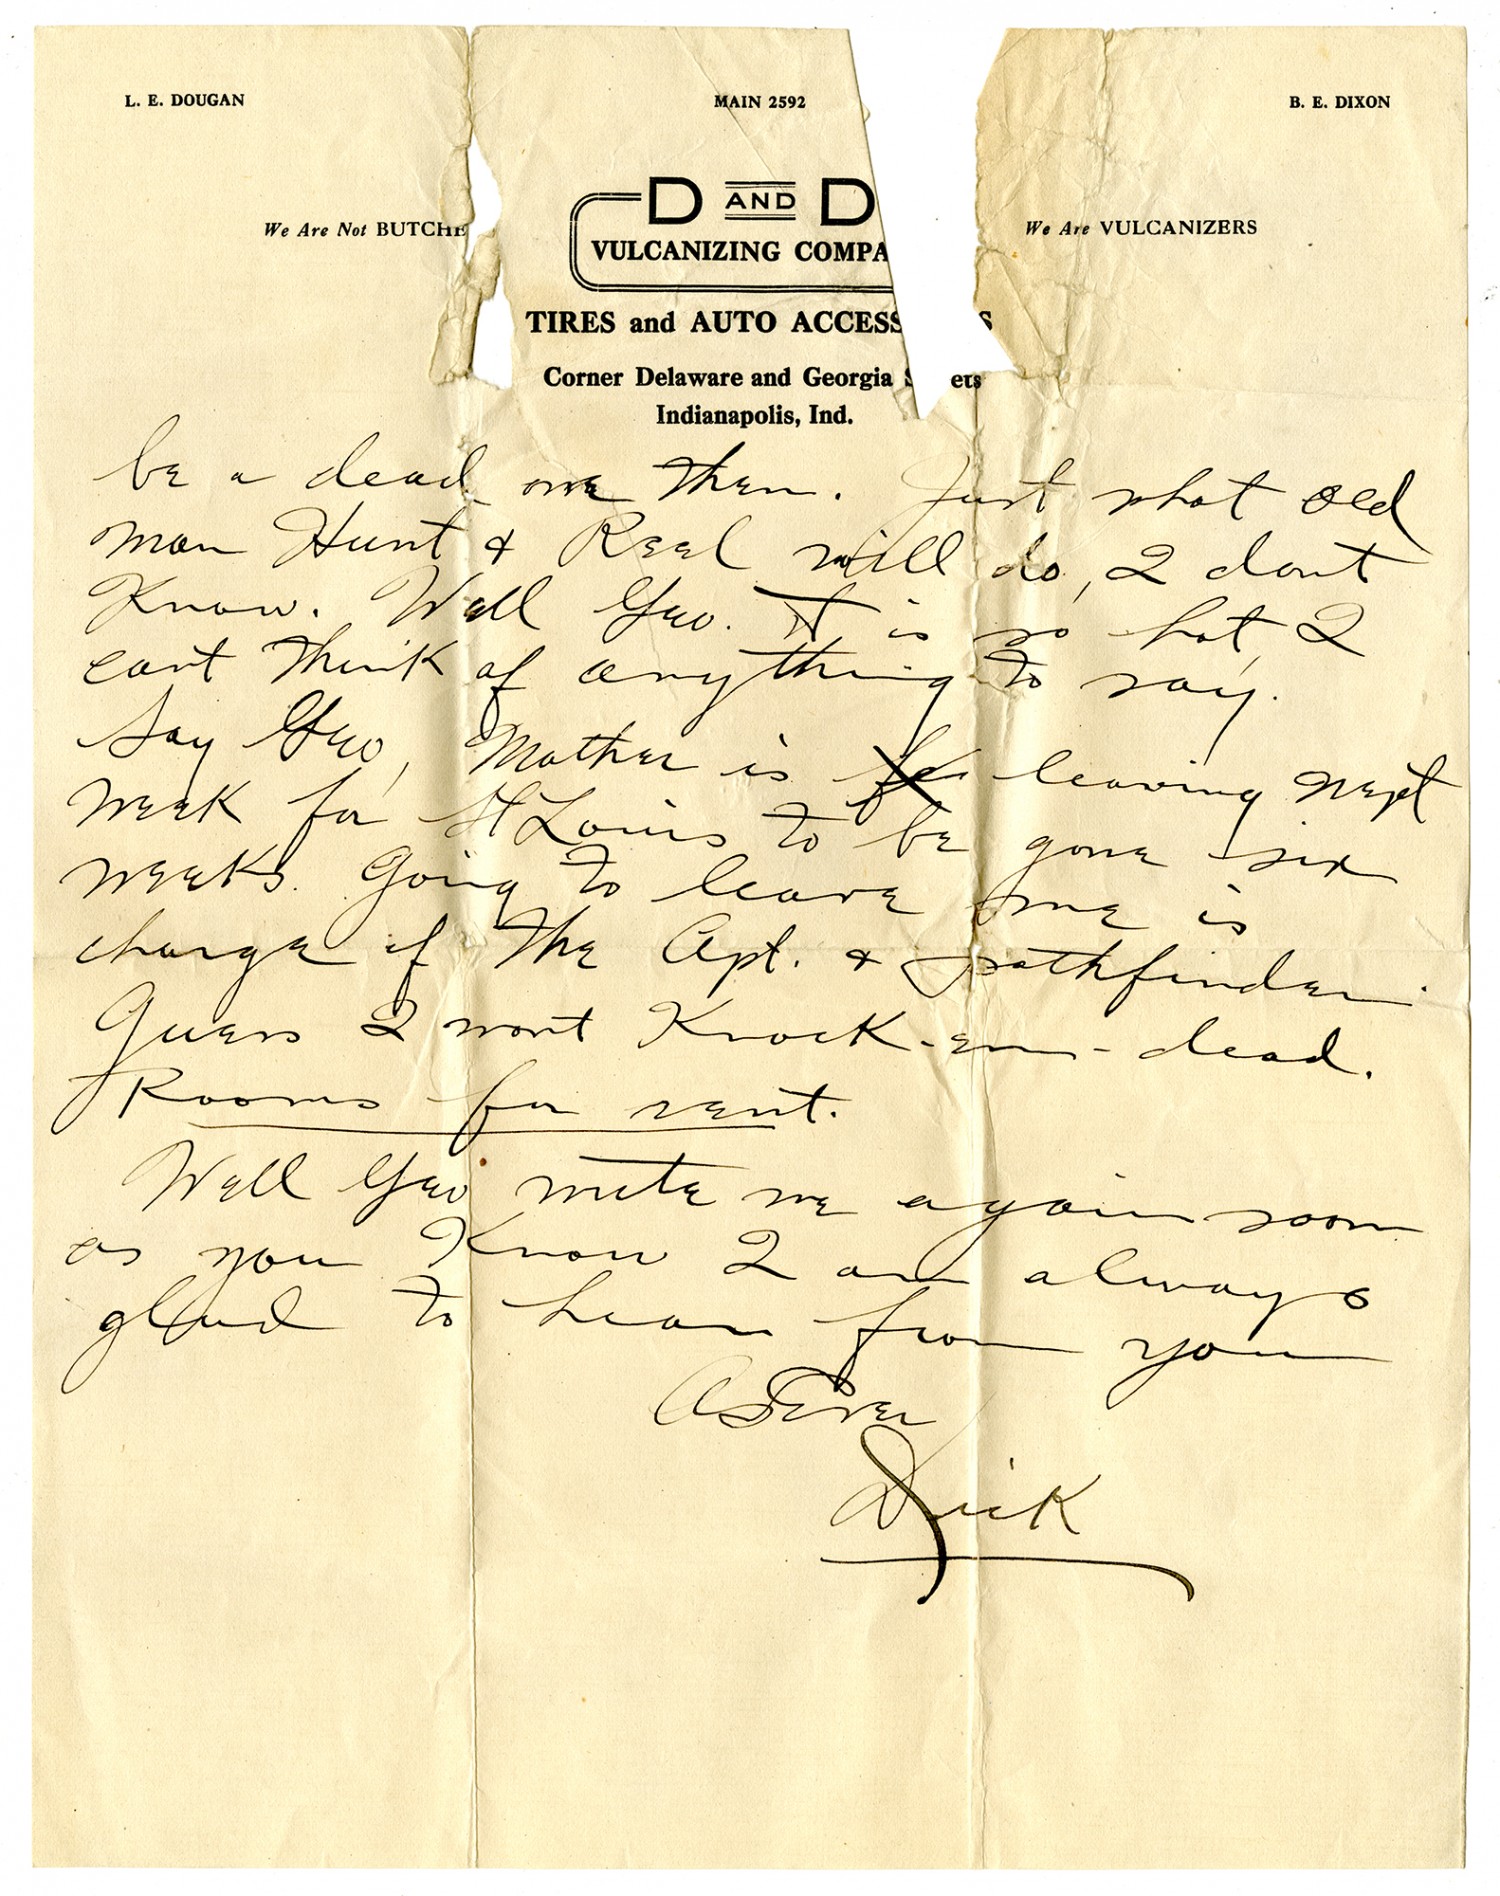 L. E. DOUGAN MAIN 2592 B. E. DIXON
D AND D
We Are Not BUTCHE We Are VULCANIZERS
VULCANIZING COMPA
TIRES and AUTO ACCESS S
Corner Delaware and Georgia S ets
Indianapolis, Ind.
be a dead one then. Just what old
man Hunt & Reel will do, I dont
Know. Well Geo. It is so hot, I
cant think of anything to say.
Say Geo, Mother is leaving next
week for St Louis to be gone six
weeks. Going to leave me is
charge of the Apt. & Pathfinder.
Guess I wont Knock-em-dead.
Rooms for rent.
Well Geo write me again soon
as you Know I am always
glad to hear from you
As Ever
Dick